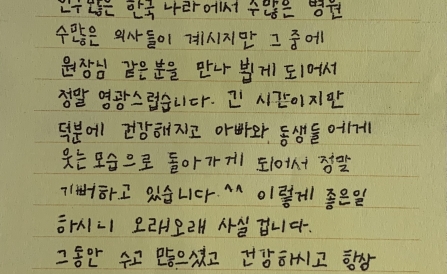 인구많은 한국 나라에서 수많은 병원
수많은 의사들이 계시지만 그 중에
원장님 같은분을 만나 뵙게 되어서
정말 영광스럽습니다. 긴 시간이지만
덕분에 건강해지고 아빠와 동생들에게
웃는모습으로 돌아가게 되어서 정말
기뻐하고 있습니다.^^ 이렇게 좋은일
하시니 오래오래 사실 겁니다.
그동안 수고 많으셨고 건강하시고 항상